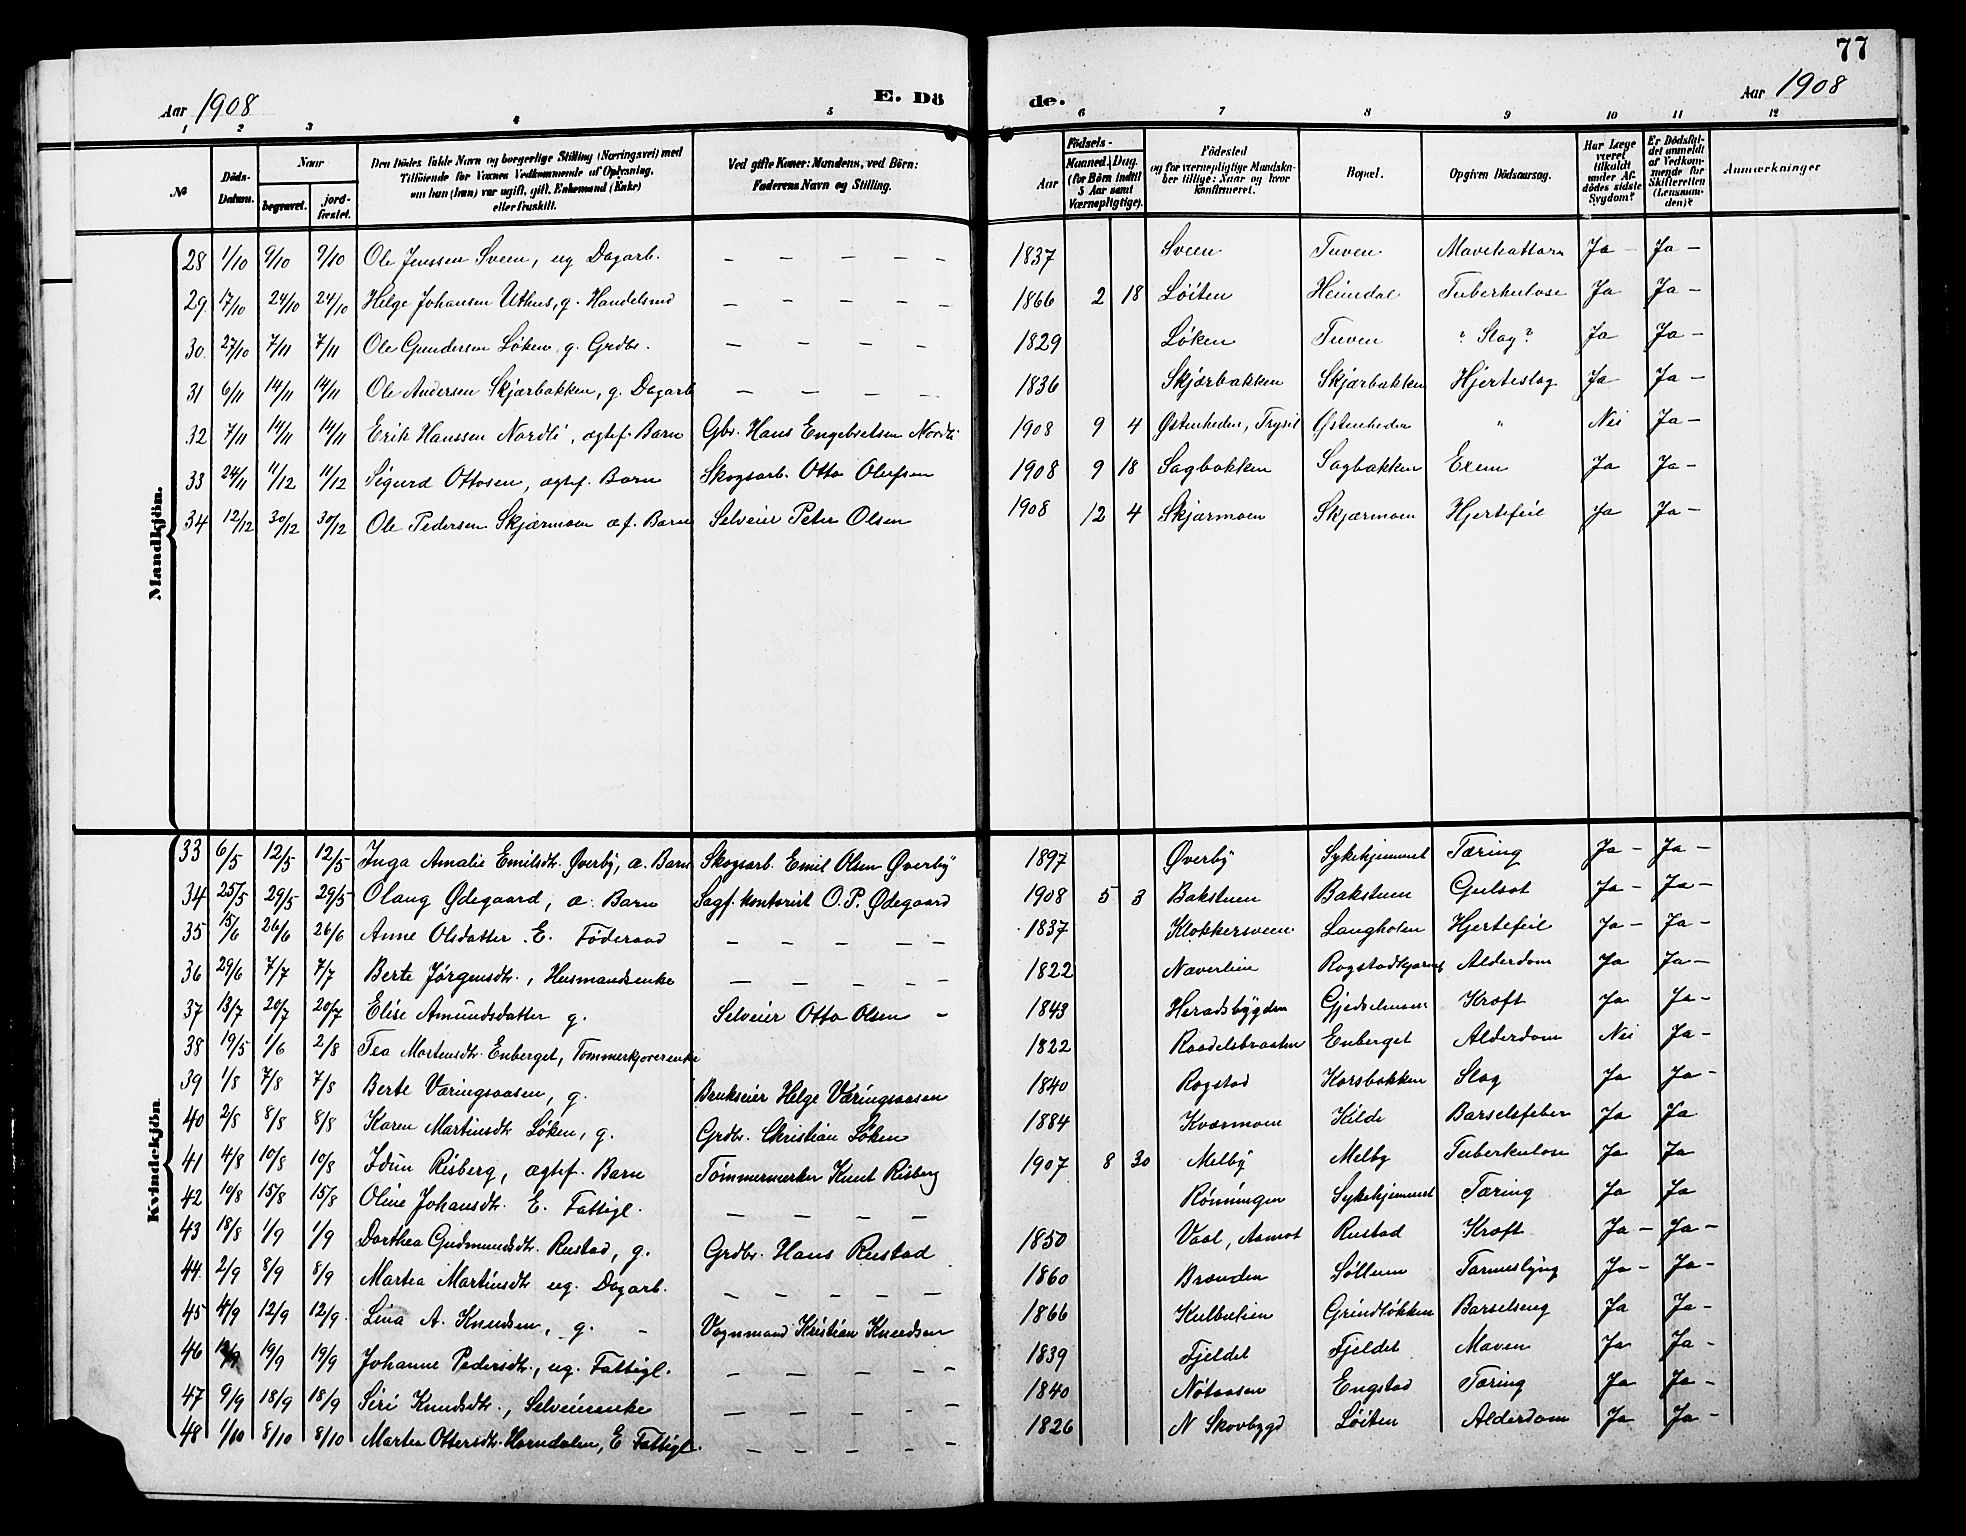 77
Aar 1908 E. Dö de. Aar 1908
1 2 3 4 5 6 7 8 9 10 11 12
№ Döds-Datum. Naar begravet. jord-fæstet. Den Dödes fulde Navn og borgerlige Stilling (Næringsvei) med Tilföiende for Voxnes Vedkommende af Oplysning, om han (hun) var ugift, gift, Enkemand (Enke) eller fraskilt. Ved gifte Koner: Mandens, ved Börn: Faderens Navn og Stilling. Födsels- Aar Maaned. Dag. (for Börn indtil 5 Aar samt Værnepligtige). Födested og for værnepligtige Mandskaber tillige: Naar og hvor konfirmeret. Bopæl. Opgiven Dödsaarsag. Har Læge været tilkaldt under Afdödes sidste Sygdom? Er Dödsfaldet anmeldt af Vedkommende for Skifteretten (Lensmanden)? Anmærkninger
Mandkjön.
28 1/10 9/10 9/10 Ole Jenssen Sveen, ug Dagarb. — — — — — 1837 Sveen Tuven Mavekattarr Ja — Ja —
29 17/10 24/10 24/10 Helge Johansen Uthus, g. Handelsmd — — — — — 1866 2 18 Løiten Heimdal Tuberkulose Ja Ja —
30 27/10 7/11 7/11 Ole Gundersen Løken, g. Grdbr. — — — — 1829 Løken Tuven ? Slag ? Ja Ja —
31 6/11 14/11 14/11 Ole Andersen Skjærbakken, g. Dagarb — — — — 1836 Skjærbakken Skjærbakken Hjerteslag Ja Ja —
32 7/11 14/11 14/11 Erik Hanssen Nordli, ægtef. Barn Gbr. Hans Engebretsen Nordli 1908 9 4 Østenheden, Trysil Østenheden " Nei Ja —
33 24/11 11/12 11/12 Sigurd Ottosen, ægtef. Barn Skogsarb. Otto Olufsen 1908 9 18 Sagbakken Sagbakken Exem Ja Ja —
34 12/12 30/12 30/12 Ole Pedersen Skjærmoen æf. Barn Selveier Peter Olsen 1908 12 4 Skjærmoen Skjærmoen Hjertefeil Ja Ja —
Kvindekjön
33 6/5 12/5 12/5 Inga Amalie Emilsdtr. Øverby, æ. Barn Skogsarb. Emil Olsen Øverby 1897 Øverby Sykehjemmet Tæring Ja — Ja —
34 25/5 29/5 29/5 Olaug Ødegaard, æ. Barn Sagf. kontorist O. P. Ødegaard 1908 5 3 Bakstuen Bakstuen Gulsot Ja — Ja —
35 15/6 26/6 26/6 Anne Olsdatter E. Føderaad — — — — — 1837 Klokkersveen Langholen Hjertefeil Ja — Ja —
36 29/6 7/7 7/7 Berte Jørgensdtr., Husmandsenke — — — — — 1822 Næverlien Alderdom Ja Ja —
37 13/7 20/7 20/7 Elise Amundsdatter g. Selveier Otto Olsen — 1843 Heradsbygden Kræft Ja Ja —
38 19/5 1/6 2/8 Tea Mortensdtr. Enberget, Tømmerkjørerenke 1822 Raadelsbraaten Enberget Alderdom Nei Ja —
39 1/8 7/8 7/8 Berte Væringsaasen, g. Brukseier Helge Væringsaasen 1840 Rogstad Korsbakken Slag Ja Ja —
40 2/8 8/8 8/8 Karen Martinsdtr Løken, g. Grdbr. Christian Løken 1884 Kværnmoen Kilde Barselfeber Ja Ja
41 4/8 10/8 10/8 Idun Risberg, ægtef. Barn Tømmermerker Knut Risberg 1907 8 30 Melby Melby Tuberkulose Ja Ja
42 10/8 15/8 15/8 Oline Johansdtr. E. Fattigl. — — — — Rønningen Sykehjemmet Tæring Ja Ja
43 18/8 1/9 1/9 Dorthea Gudmundsdtr. Rustad, g. Grdbr. Hans Rustad 1850 Vaal, Aamot Rustad Kræft Ja — Ja —
44 2/9 8/9 8/9 Martea Martinsdtr ug. Dagarb. — — — — — 1860 Brænden Søllum Tarmeslyng Ja — Ja —
45 4/9 12/9 12/9 Lina A. Knudsen, g. — Vognmand Kristian Knudsen 1866 Kulbulien Grindløkken Barselseng Ja Ja —
46 19/9 19/9 Johanne Pedersdtr., ug. Fattigl. — — — — — 1839 Fjeldet Fjeldet Maven Ja Ja —
47 9/9 18/9 18/9 Siri Knudsdtr., Selveierenke — — — — — 1840 Nøtaasen Engstad Tæring Ja Ja —
48 1/10 8/10 8/10 Martea Ottersdtr. Horndalen, E Fattigl. — — — — — 1826 N Skovbygd Løiten Alderdom Ja Ja —